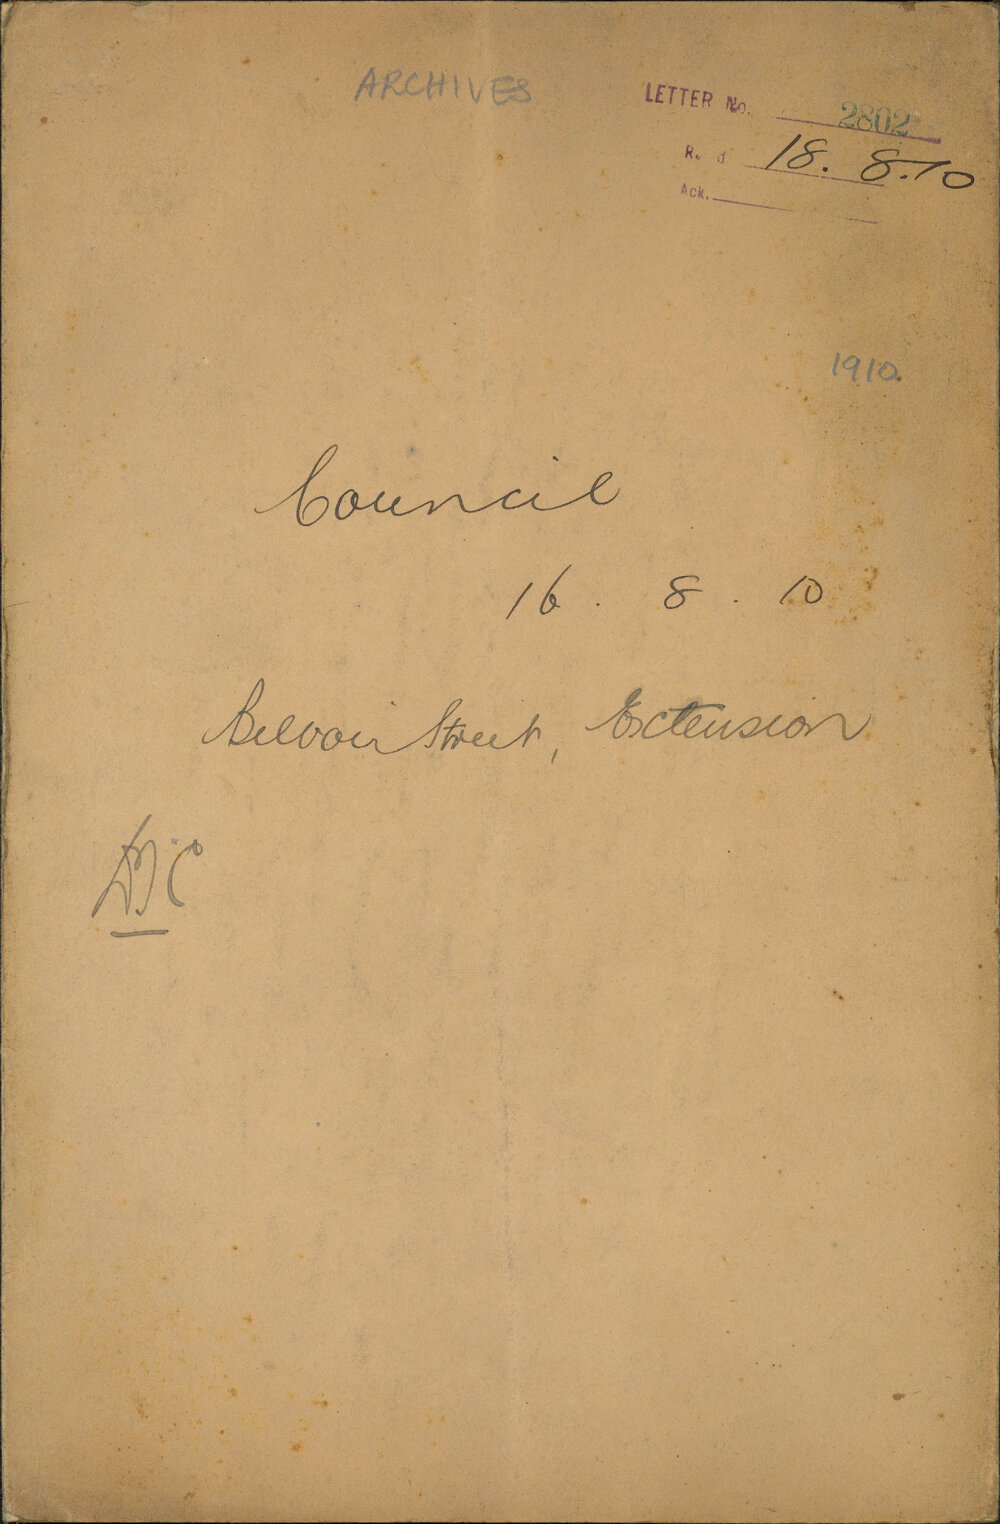 ARCHIVES
LETTER No. 2802
R. d 18. 8. 10
Ack.
1910.
Council
16. 8. 10
Belvoir Street, Extension